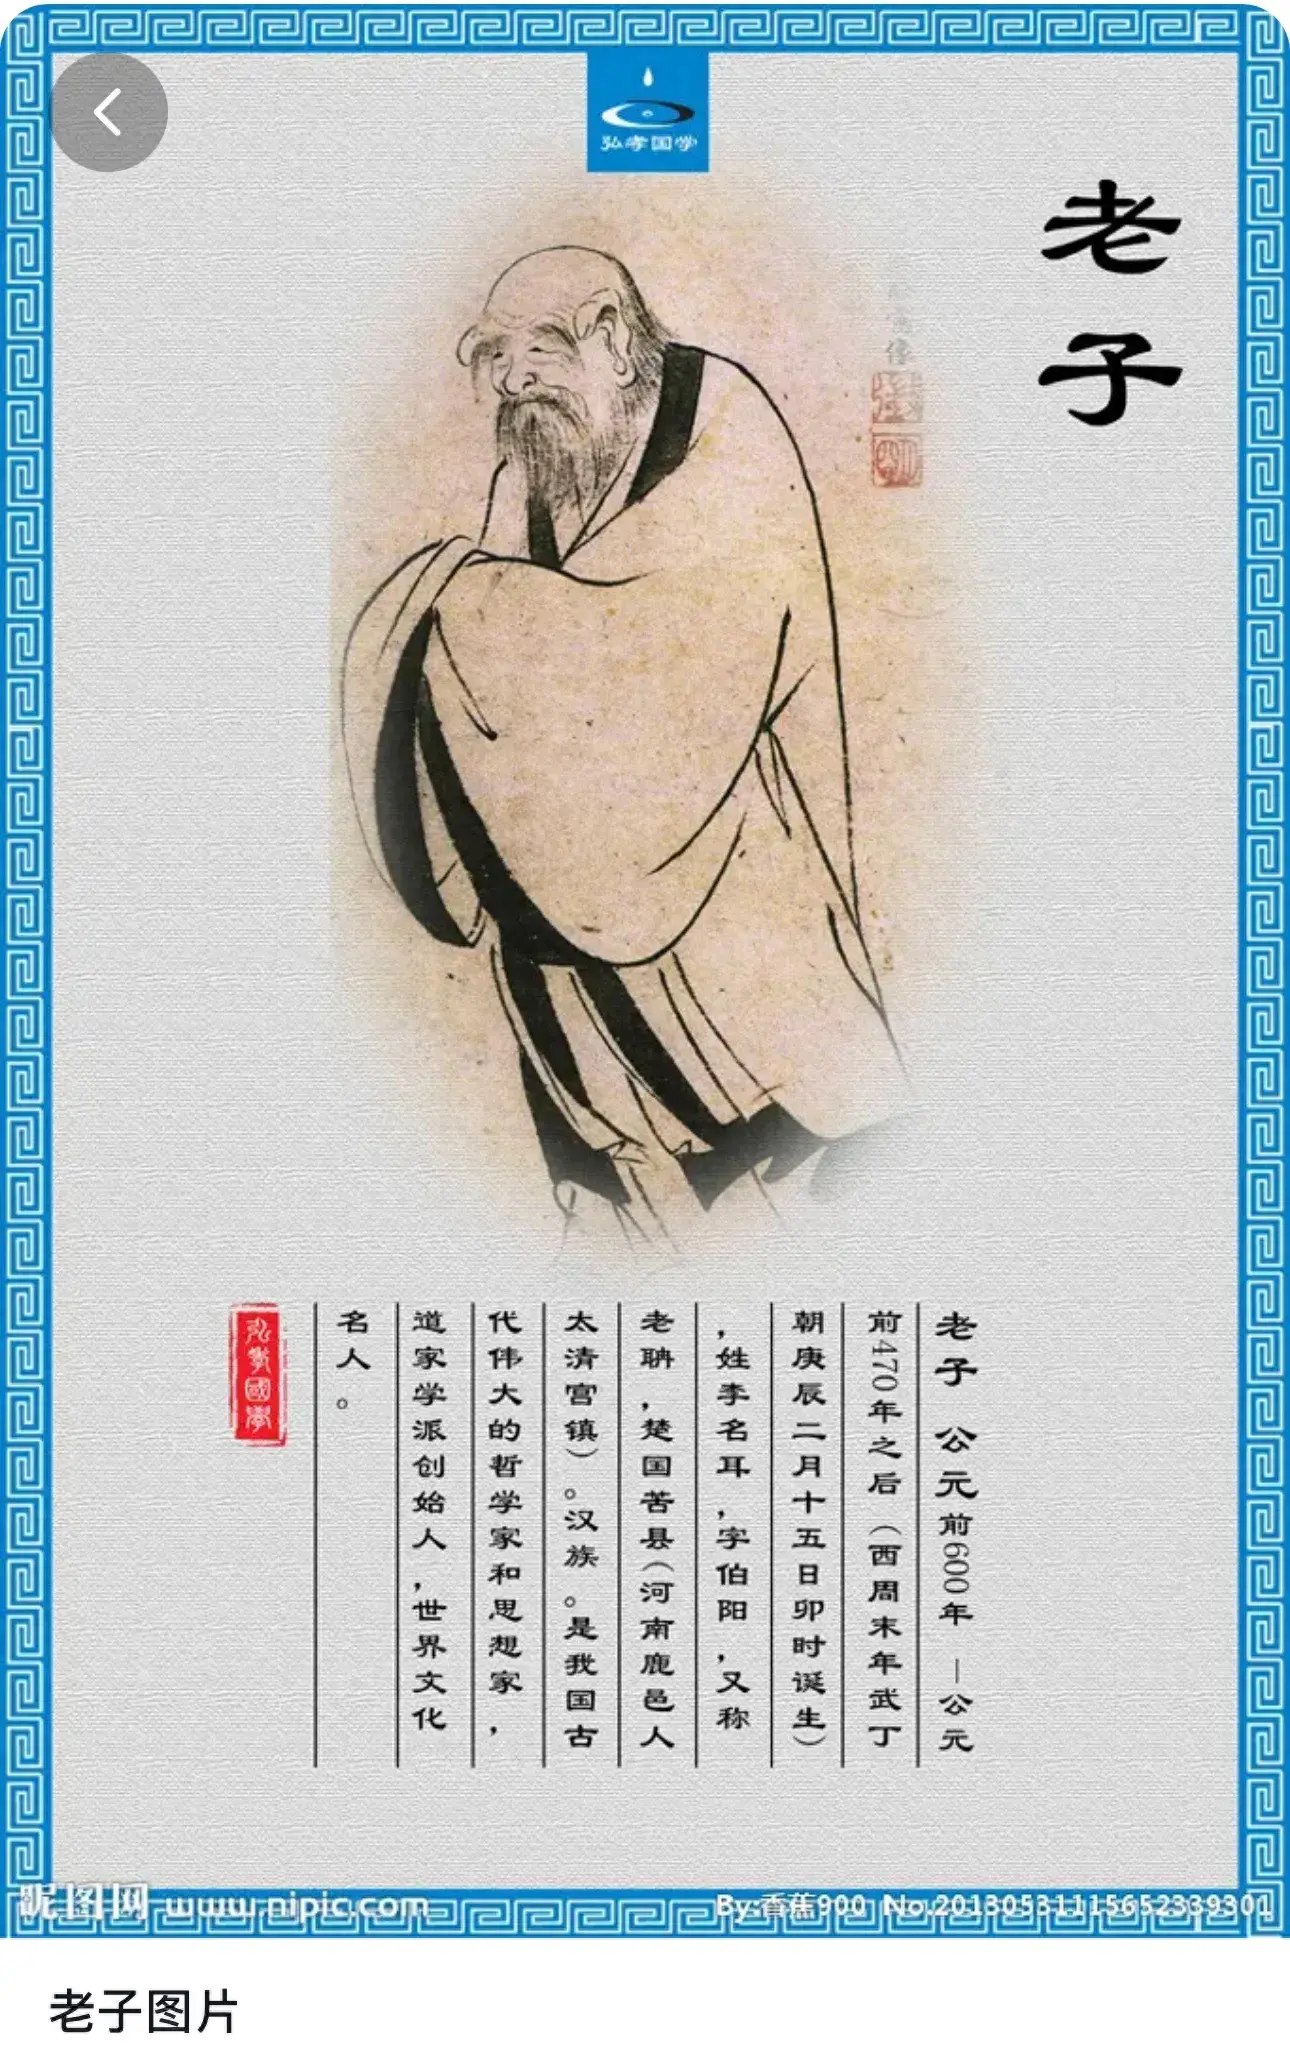 弘孝国学
老子
老子 公元前600年 —公元
前470年之后（西周末年武丁
朝庚辰二月十五日卯时诞生）
，姓李名耳，字伯阳，又称
老聃，楚国苦县（河南鹿邑人
太清宫镇）。汉族。是我国古
代伟大的哲学家和思想家，
道家学派创始人，世界文化
名人。
弘孝國學
昵图网 www.nipic.com
By:香蕉900 No.20130531115652339301
老子图片